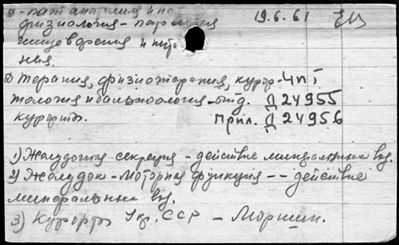 0-пат. анатомия и пат. 19.6.61
физиология - патология
пищеварения и пита-
ния.
2) терапия, физиотерапия, курор- 4 п/1
тология и бальнеология - отд. Д 24955
курорты. Прил. Д 24956
1) Желудочная секреция - действие минеральных вод.
2) Желудок - моторная функция -- действие
минеральных вод.
3) Курорты Укр. ССР - Моршин.